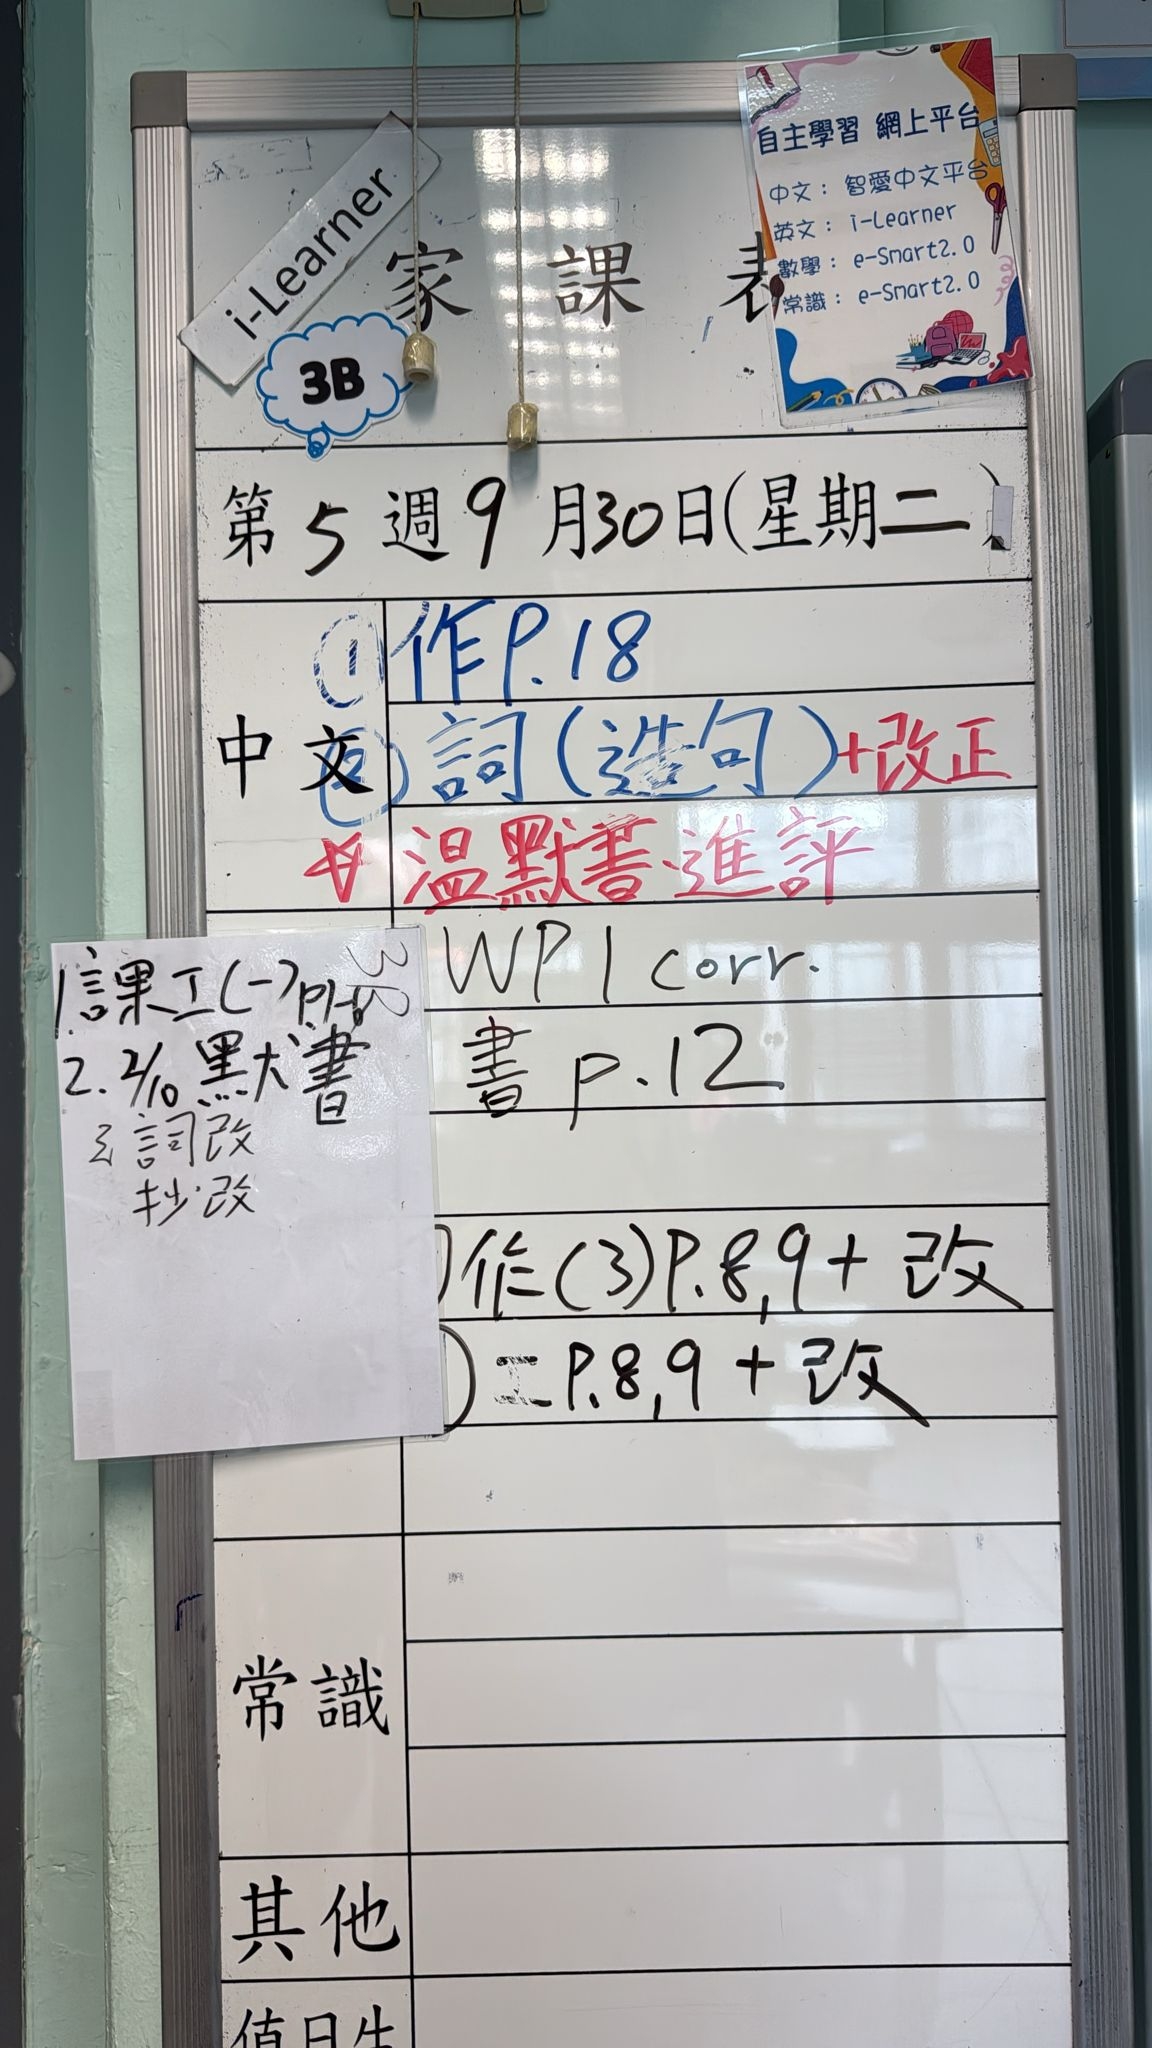 自主學習 網上平台
中文： 智愛中文平台
英文： i-Learner
數學： e-Smart2.0
常識： e-Smart2.0
i-Learner
家課表
3B
第5週9月30日(星期二)
中文
① 作P.18
② 詞(造句)+改正
☆ 溫默書、進評
WP1 corr.
書 p.12
1.課工(一)
2. 2/10 默書
3. 詞改
抄.改
)作(3)P.8,9 + 改
)工P.8,9 + 改
常識
其他
值日生